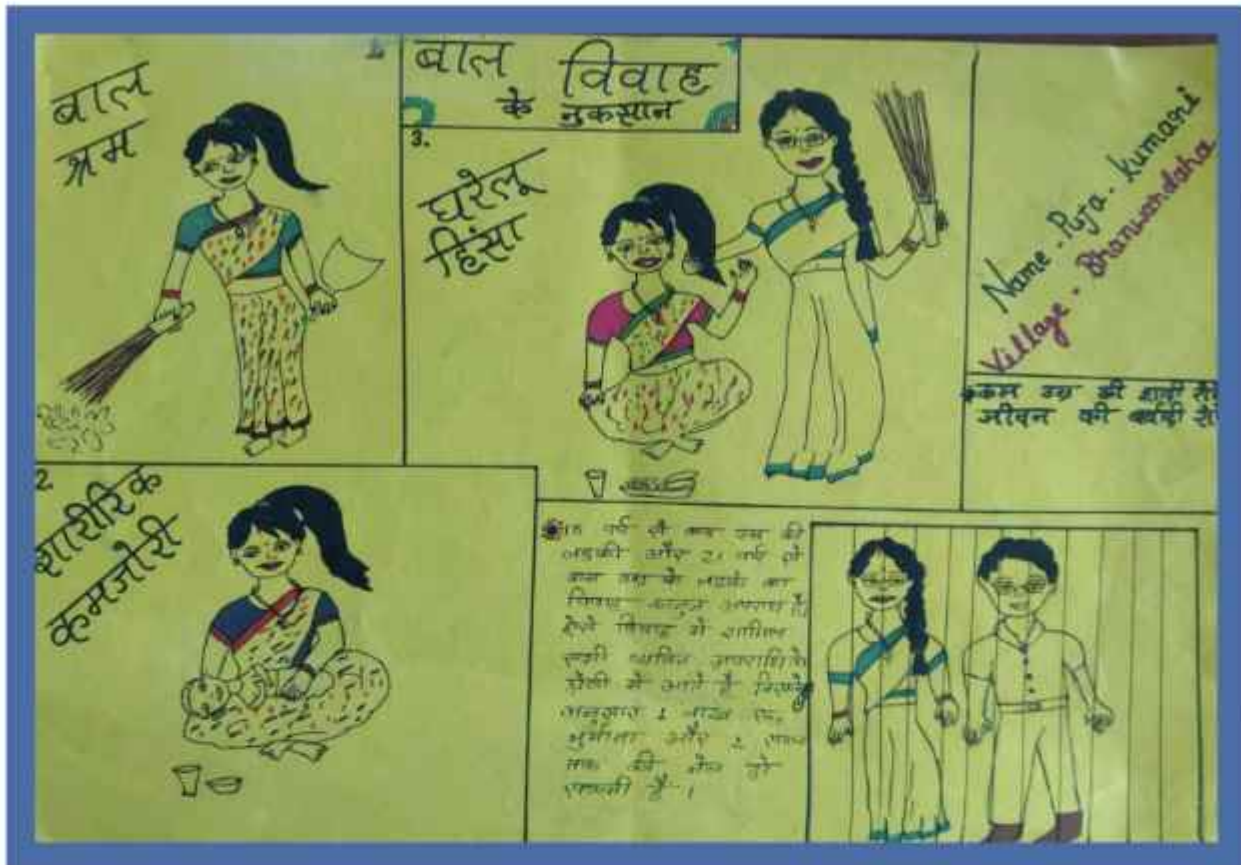 बाल विवाह
के नुकसान
1.
बाल
श्रम
3.
घरेलू
हिंसा
Name - Puja - kumari
Village - Bhanwardaha
कम उम्र की शादी
जीवन की बर्बादी
2.
शारीरिक
कमजोरी
18 वर्ष से कम उम्र की
लडकी और 21 वर्ष से
कम उम्र के लडके का
विवाह कानूनन अपराध है।
ऐसे विवाह में शामिल
सभी व्यक्ति अपराधि के
श्रेणी में आते है जिसके
अनुसार 1 लाख रू.
जुर्माना और 2 साल
तक की जेल हो
सकती है।